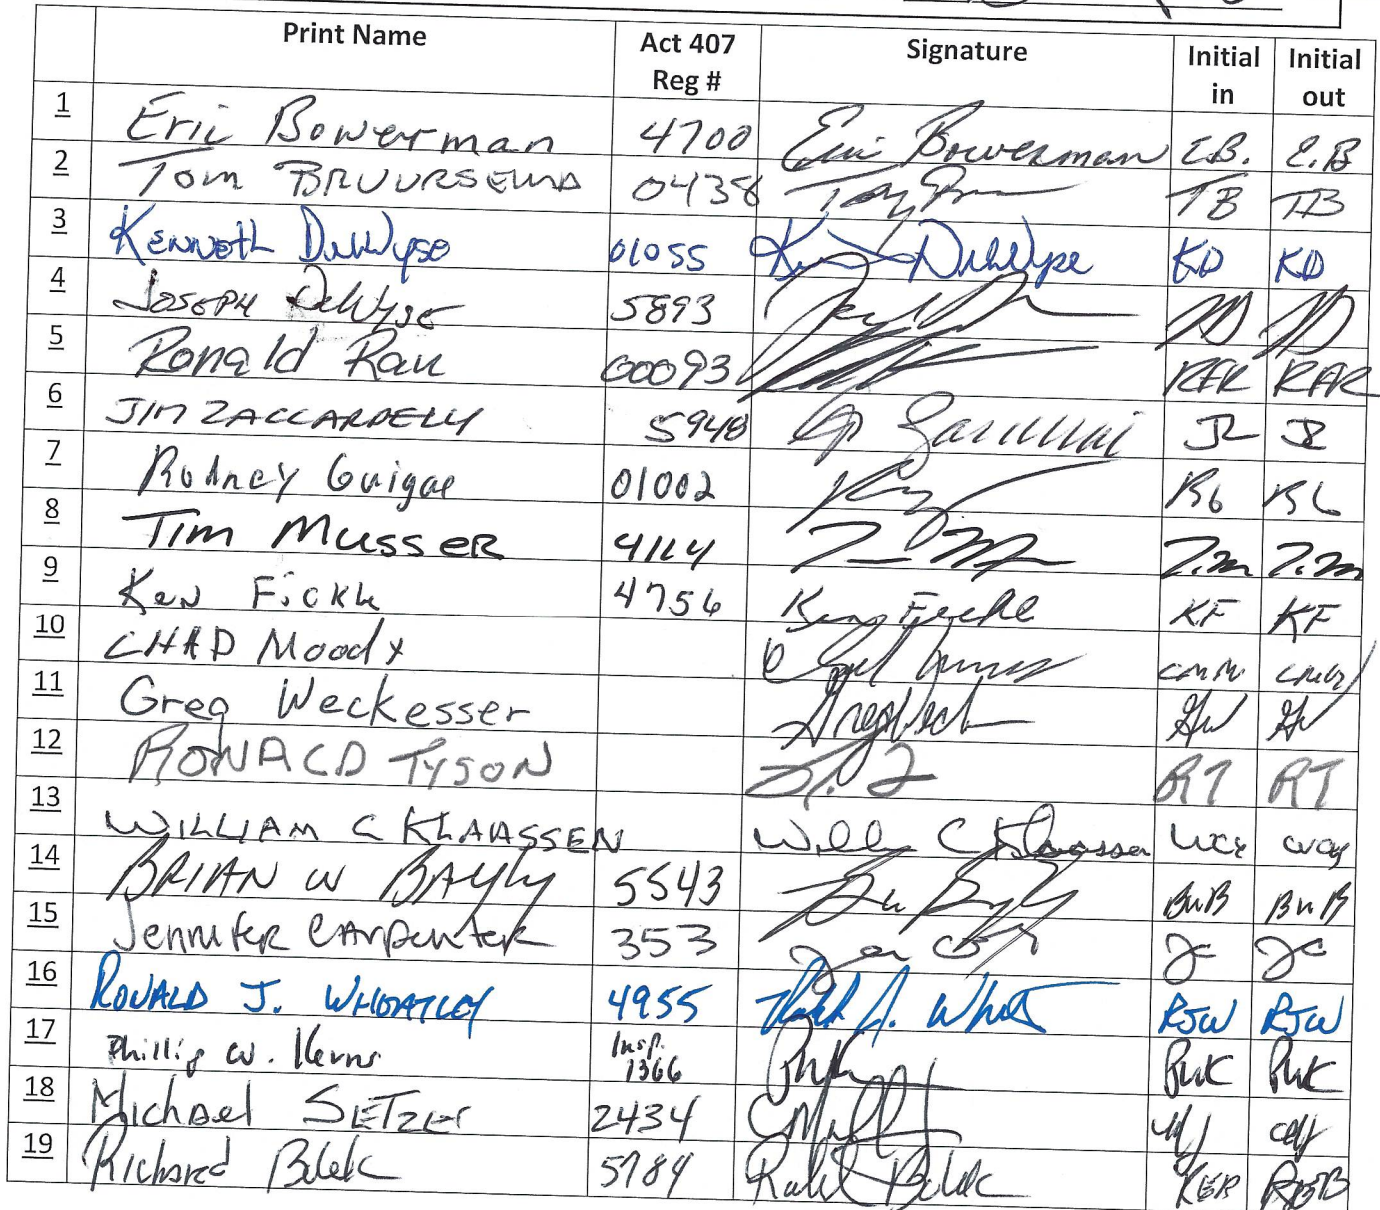 Print Name Act 407 Reg # Signature Initial in Initial out
1 Eric Bowerman 4700 Eric Bowerman E.B. E.B
2 Tom BRUURSEMA 04358 TB TB
3 Kenneth DeWyse 01055 DeWyse KD KD
4 JOSEPH DeWyse 5893 JD JD
5 Ronald Rau 00093 RFR RAR
6 JIM ZACCARDELLI 5948 JZ JZ
7 Rodney Guigue 01002 RG RG
8 Tim Musser 4114 T.M T.M
9 Ken Fickle 4756 Ken Fickle KF KF
10 CHAD Moody CMM
11 Greg Weckesser GW GW
12 RONALD TYSON RT RT
13 WILLIAM C KLAASSEN C Klaassen WCK WCK
14 BRIAN W BAYLY 5543 BWB BWB
15 Jennifer Carpenter 353 JC JC
16 RONALD J. WHEATLEY 4955 J. RJW RJW
17 Phillip W. Kerns Insp. 1366 PWK PWK
18 Michael SETZER 2434
19 Richard Bilek 5784 Bilek REB